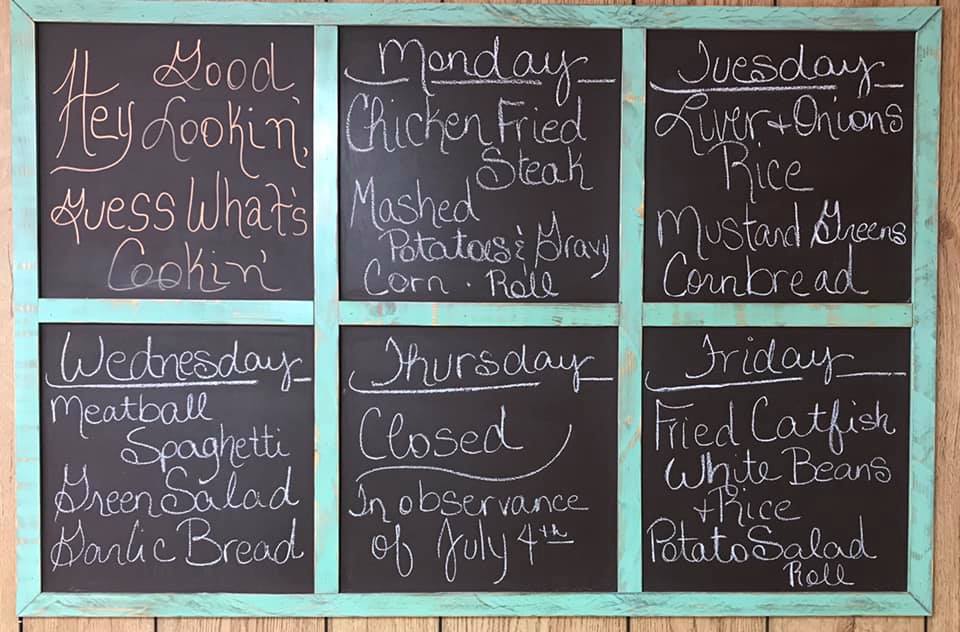 Good
Hey Lookin',
Guess What's
Cookin'
Monday
Chicken Fried
Steak
Mashed
Potatoes & Gravy
Corn · Roll
Tuesday
Liver + Onions
Rice
Mustard Greens
Cornbread
Wednesday
Meatball
Spaghetti
Green Salad
Garlic Bread
Thursday
Closed
In observance
of July 4th
Friday
Fried Catfish
White Beans
+ Rice
Potato Salad
Roll